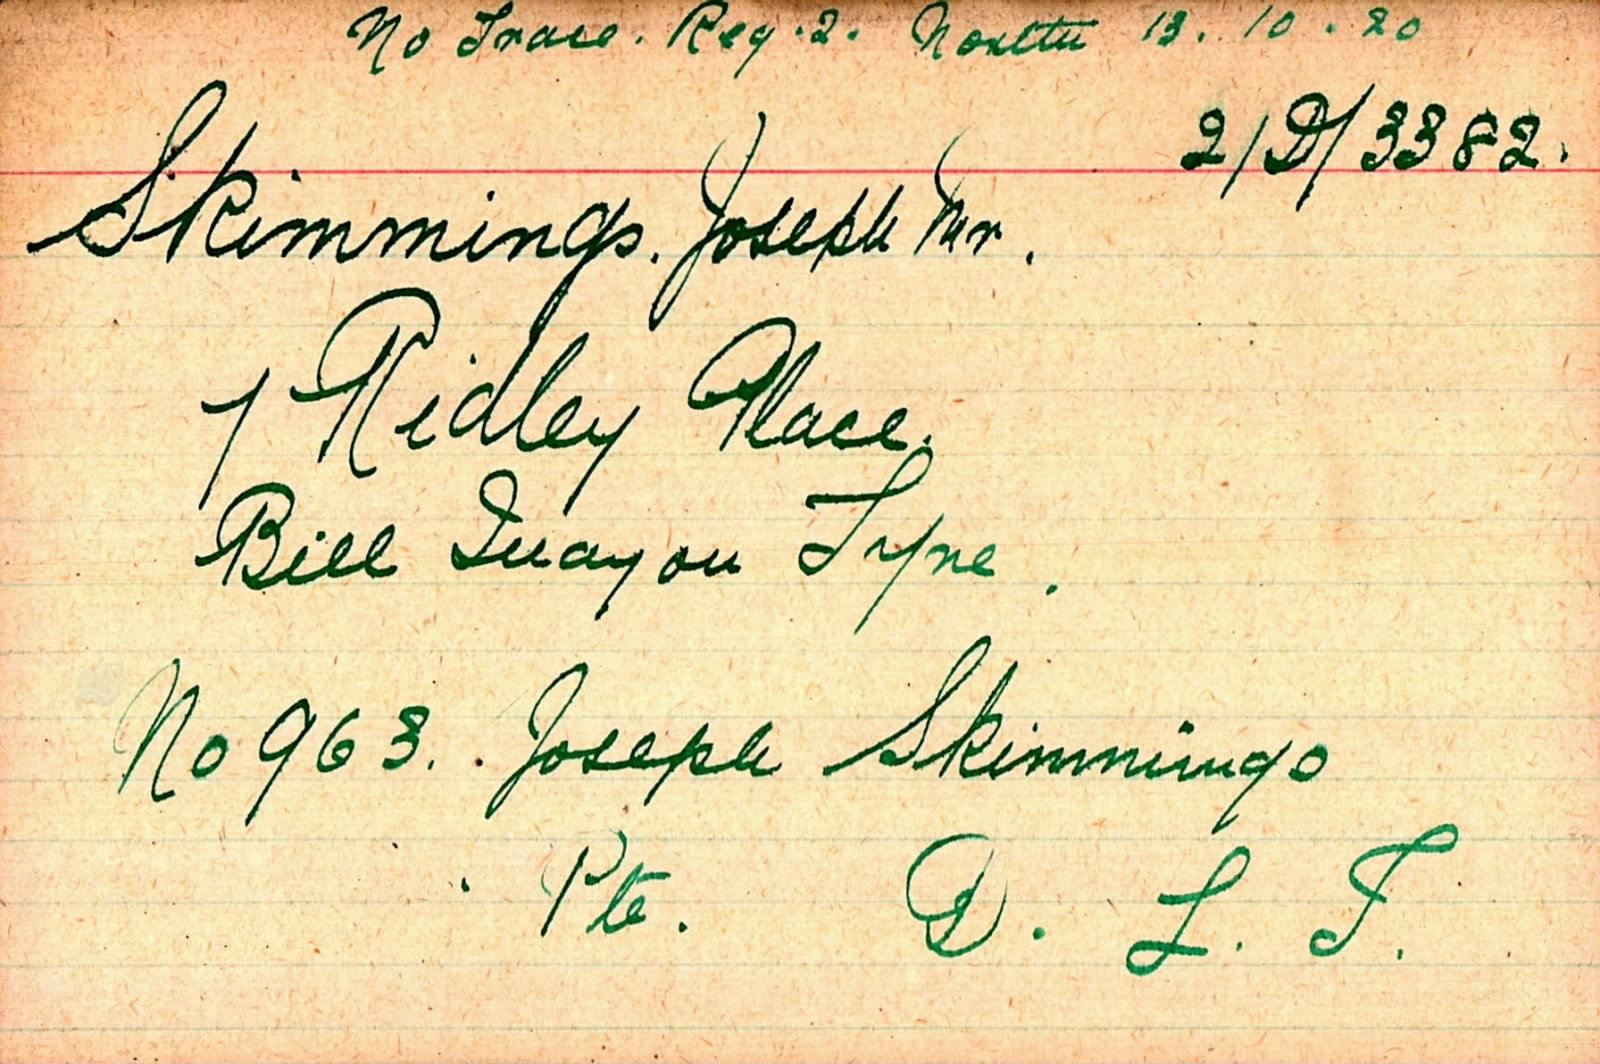 No Trace. Reg. 2. 13. 10. 20
2/D/3382.
Skimmings. Joseph Mr.
7 Ridley Place.
Bill Quay on Tyne.
No 963. Joseph Skimmings
Pte. D. L. I.